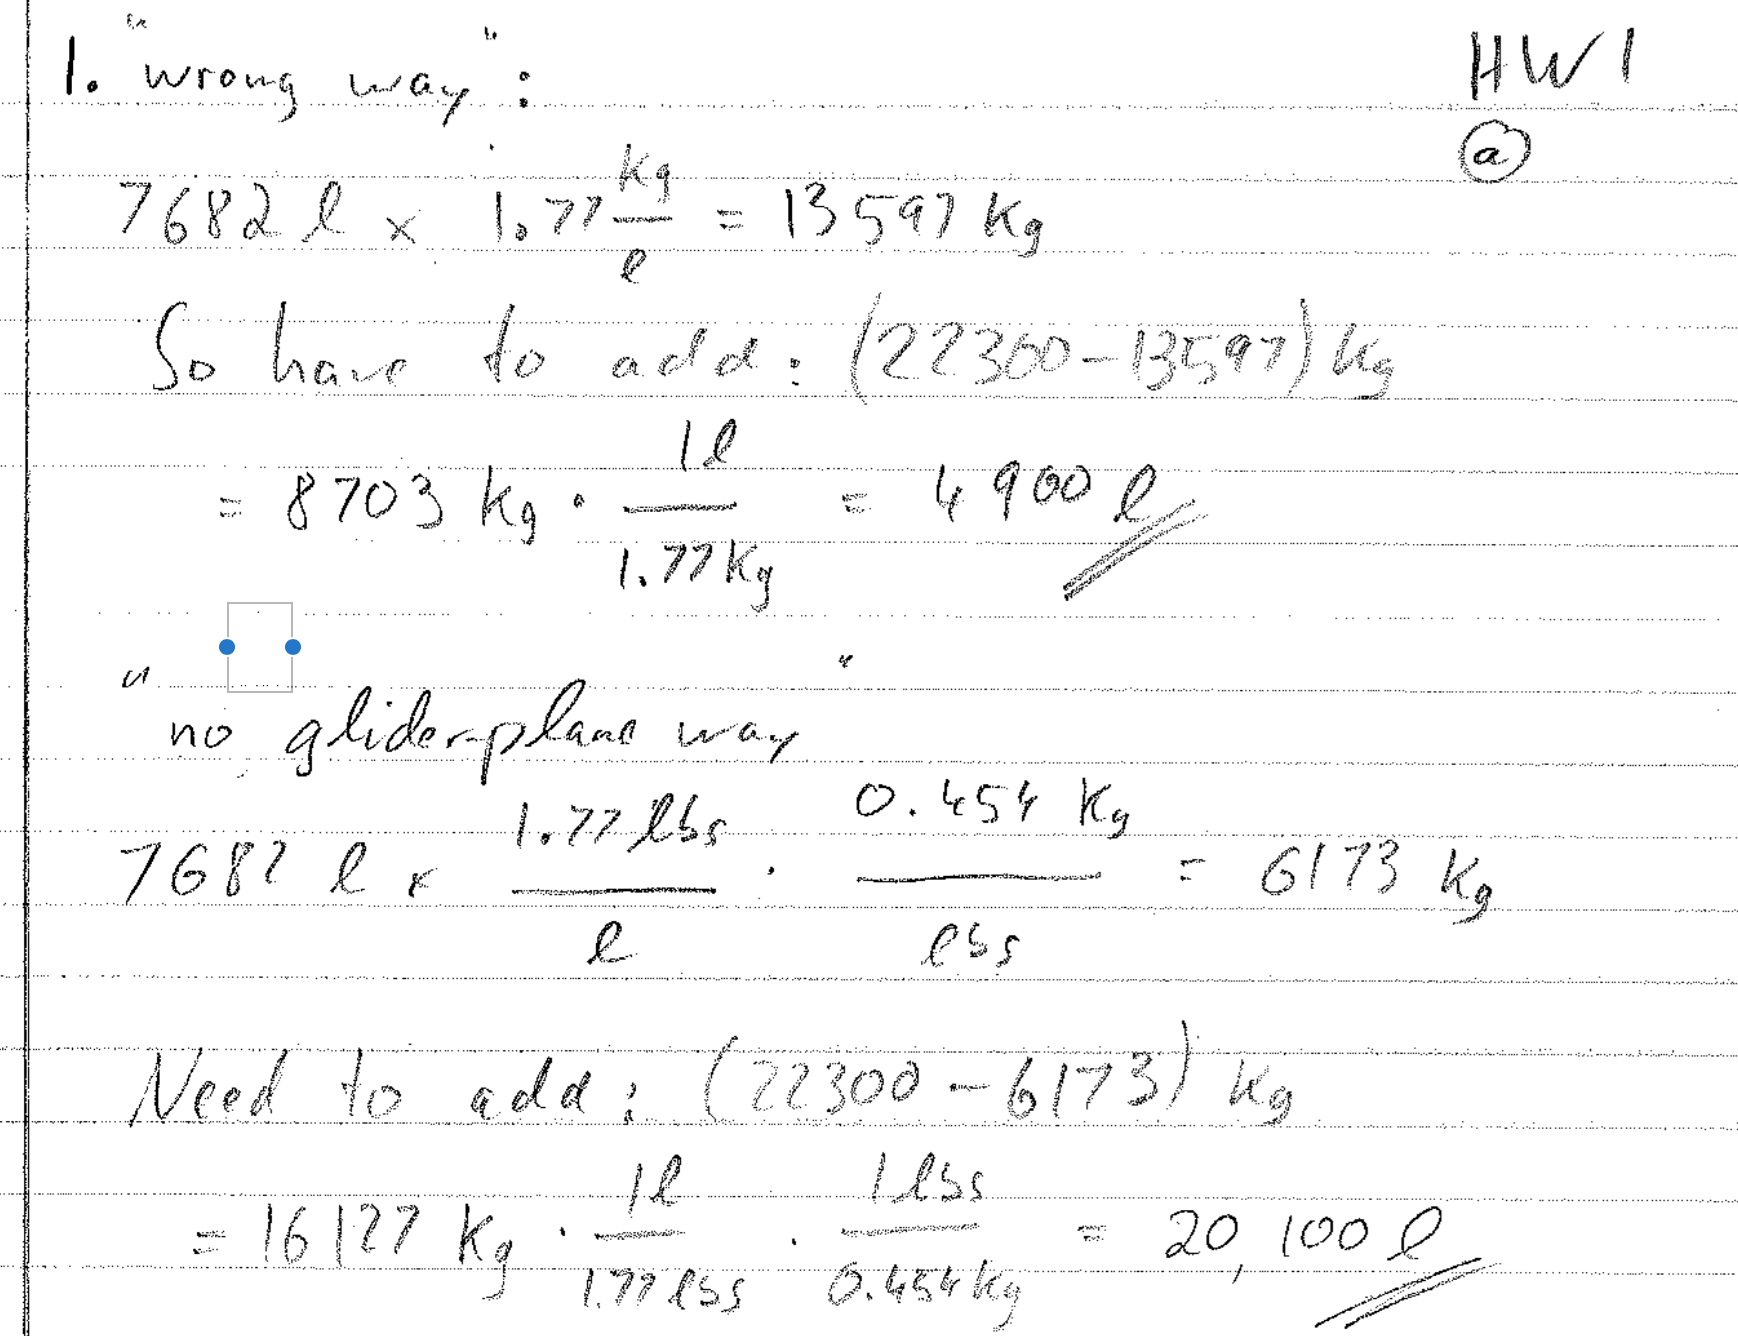 1. "wrong way": HW1
(a)
7682 l × 1.77 kg/l = 13597 kg
So have to add: (22300-13597) kg
= 8703 kg · 1l/1.77kg = 4900 l
"no glider-plane way"
7682 l × 1.77 lbs/l · 0.454 kg/lbs = 6173 kg
Need to add: (22300-6173) kg
= 16127 kg · 1l/1.77lbs · 1lbs/0.454kg = 20,100 l